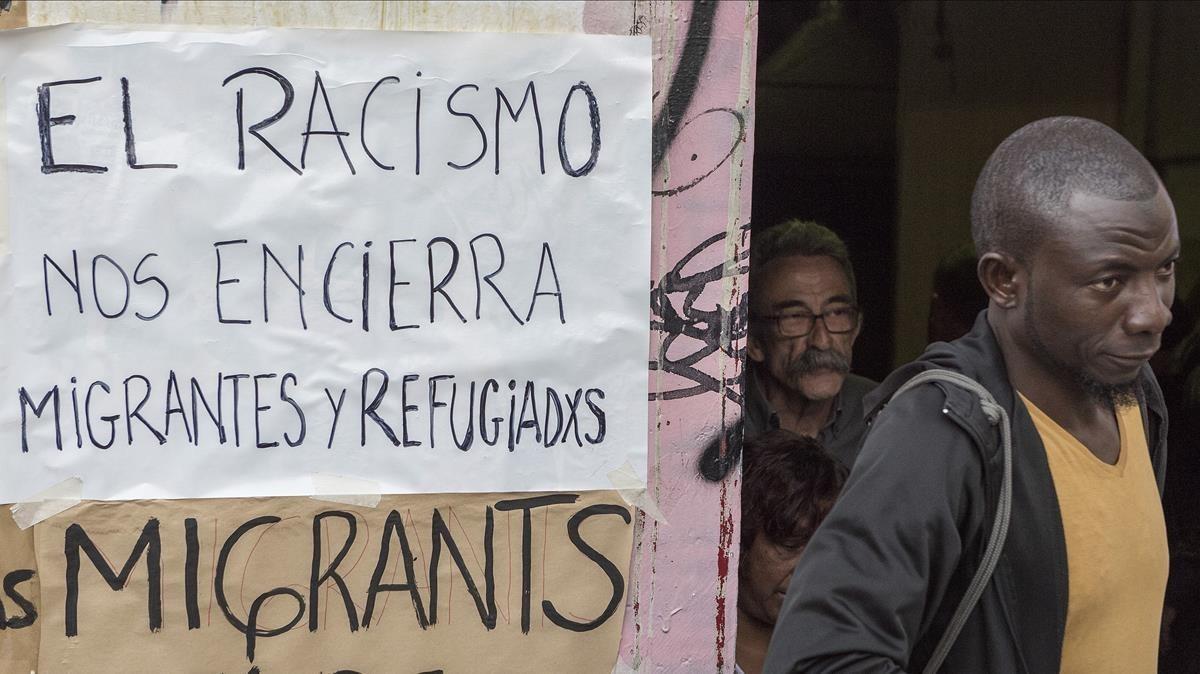 EL RACISMO
NOS ENCIERRA
MIGRANTES Y REFUGIADXS
MIGRANTS